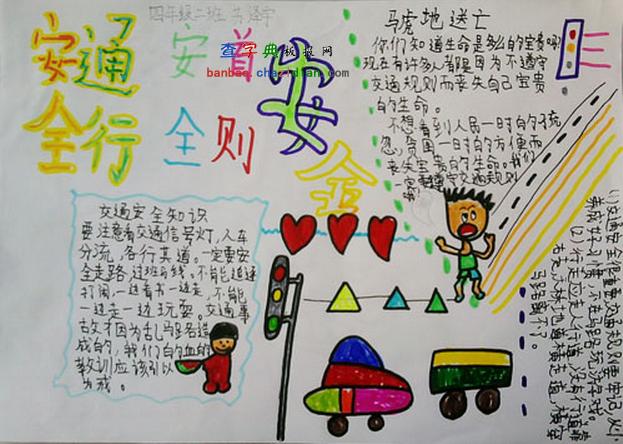 四年级二班
安通
全行
安首
全则
安
全
查字典板报网
banbao.chazidian.com
马虎地送亡
你们知道生命是多么的宝贵吗?
现在有许多人都是因为不遵守
交通规则而丧失自己宝贵
的生命。
不想看到人民一时的疏
忽,贪图一时的方便而
丧失宝贵的生命。我们
一定要遵守交通规则
交通安全知识
要注意看交通信号灯,人车
分流,各行其道。一定要安
全走路
不能追逐
打闹,一边看书一边走,不能
一边走一边玩耍。交通事
故才因为乱
造
成的,我们的血的
教训应该引以
为戒。
(1)交通安全很重要交通规则要牢记
养成好习惯,不在马路玩游戏
(2)行走应走人行道,没有行道